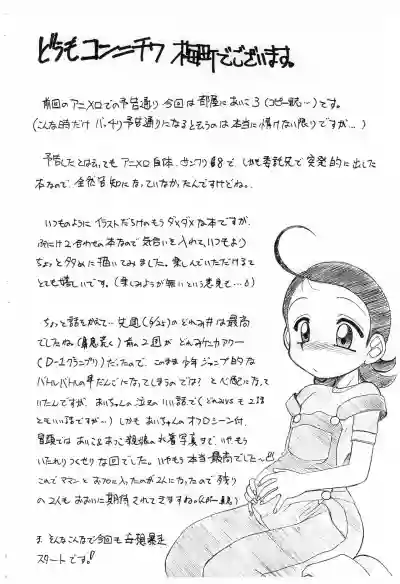 どうもコンニチワ 梅町でございます。
前回のアニメロでの予告通り今回は部屋においこ3(コピー誌…)です。
(こんな時だけバッチリ予告通りになるとそうのは本当に情けない限りですが…)
予告したとはいってもアニメロ自体、サンクリ 8で、しかも委託

で突発的に出した
本なので、全然告知になっていなかったんですけどね。
いつものようにイラストだらけのもうダメダメな本ですが、
2 合わせの本なので気合いを入れて、いつもより
ちょっと多めに描いてみました。楽しんでいただけると
とても嬉しいです。(楽しみようが無いという意見も…
ちょっと話をかえて…先週(4/25)のどれみ#は最高
でしたね。 前2回がどれみファカアウー
(D-1グランプリ)だったので、このまま少年ジャンプ的な
バトルバトルの 年だんごになってしまうのでは?と心配になって
いたんですが、あいちゃんの泣きのいい話で(どれみvsも2話
ともいい話ですが…)しかもあいちゃんのオフロシーン付、
冒頭ではあいこ あつこ親娘の水着写真まで、いやもう
いたれりつくせりな回でした。いやもう本当最高でした〜
これでママンとおフロに入ったのが2人になったので残り
の2人もおおいに期待されてきますね。
ま、そんなこんなで今回も 暴走
スタートです。!